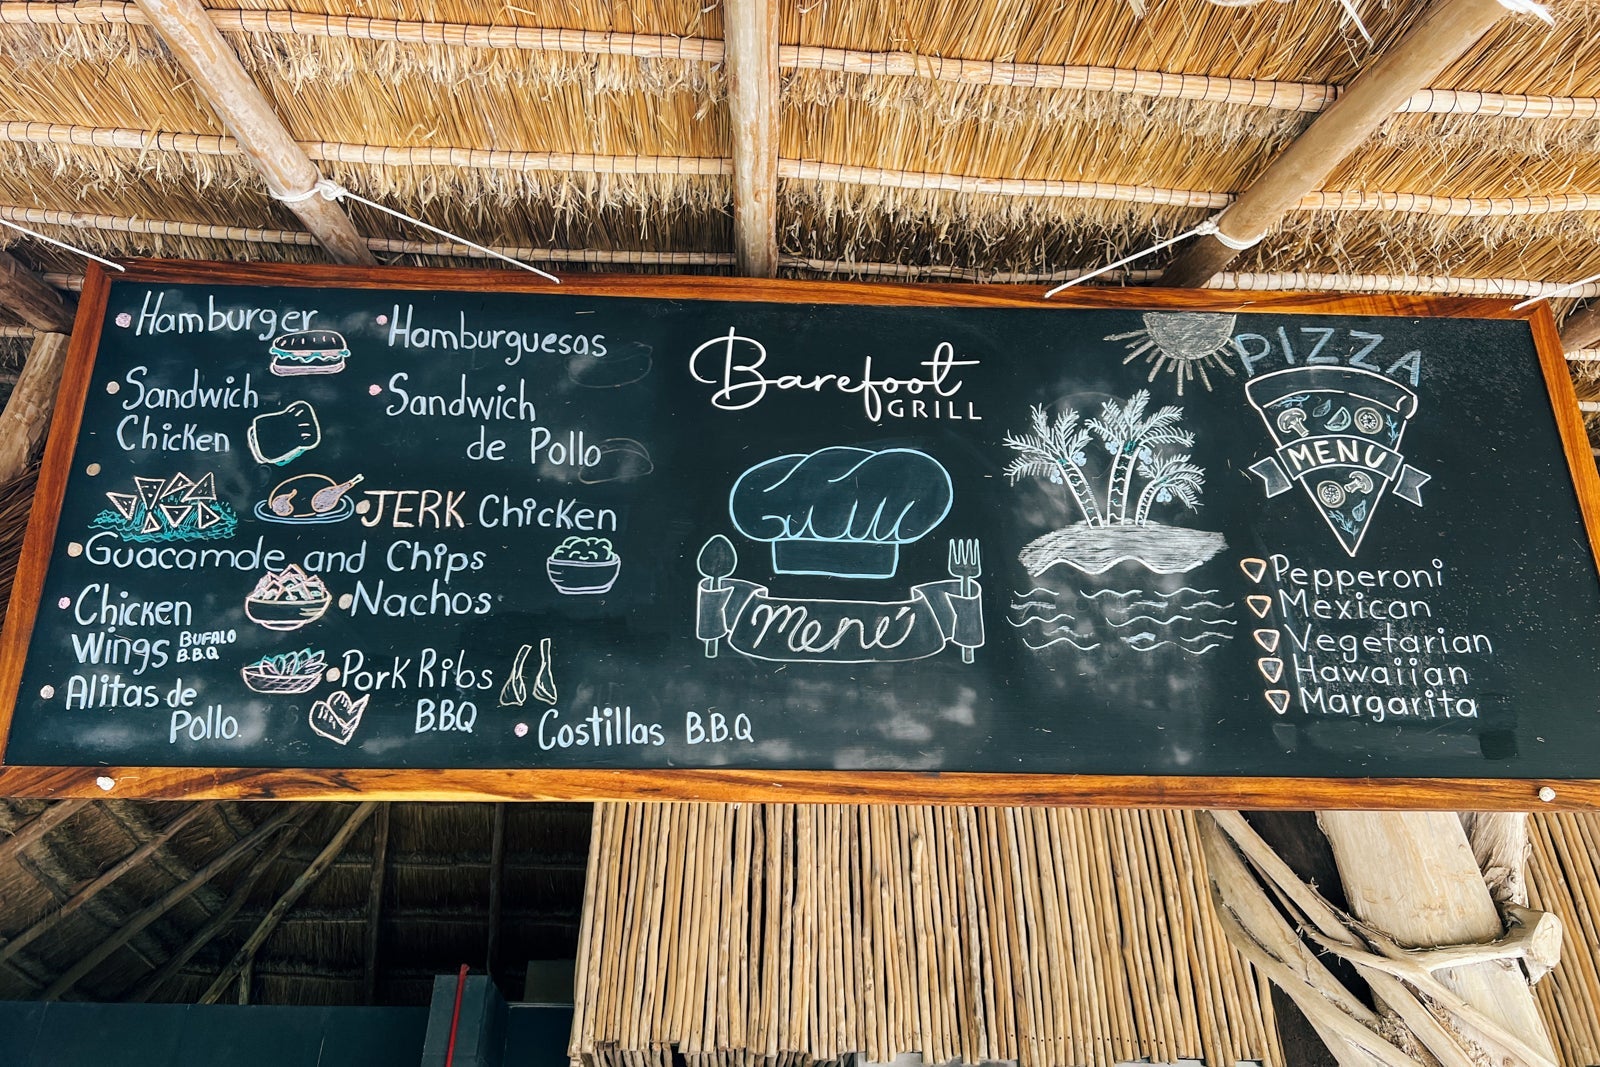 Hamburger
Hamburguesas
Sandwich
Chicken
Sandwich
de Pollo
JERK Chicken
Guacamole and Chips
Nachos
Chicken
Wings BUFALO
B.B.Q
Alitas de
Pollo.
Pork Ribs
B.B.Q
Costillas B.B.Q
Barefoot
GRILL
Menú
PIZZA
MENU
Pepperoni
Mexican
Vegetarian
Hawaiian
Margarita